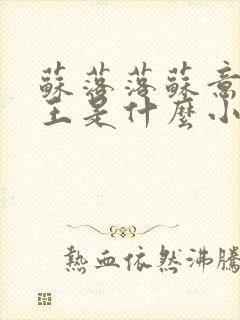 蘇落落蘇意
王是什麼小
熱血依然沸騰